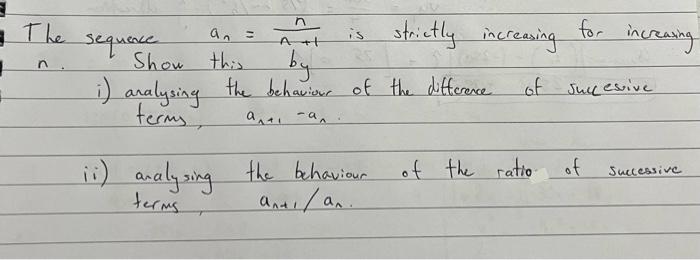 The sequence aₙ = n/(n+1) is strictly increasing for increasing
n. Show this by
i) analysing the behaviour of the difference of succesive
terms, aₙ₊₁ - aₙ.
ii) analysing the behaviour of the ratio of successive
terms, aₙ₊₁/aₙ.